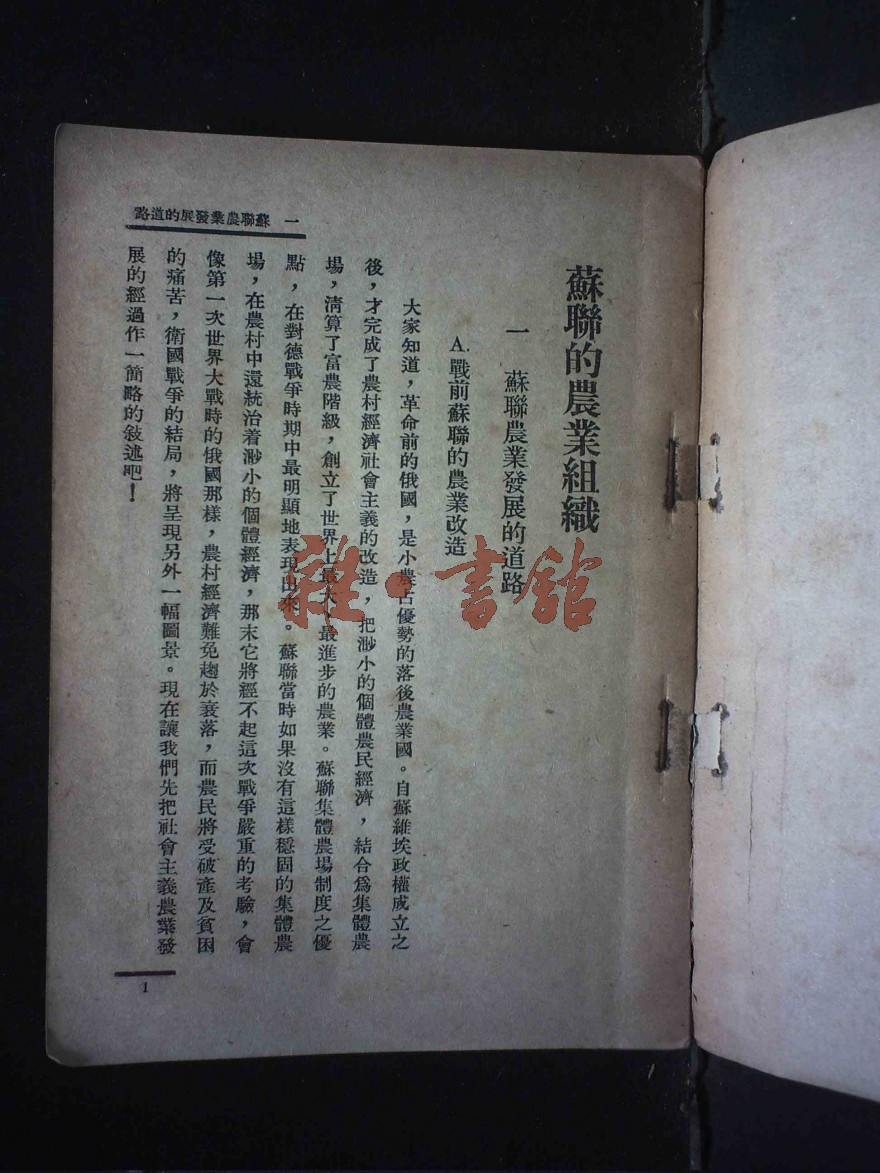 蘇聯的農業組織
一　蘇聯農業發展的道路
A.戰前蘇聯的農業改造
大家知道，革命前的俄國，是小農占優勢的落後農業國。自蘇維埃政權成立之
後，才完成了農村經濟社會主義的改造，把渺小的個體農民經濟，結合爲集體農
場，清算了富農階級，創立了世界上最大、最進步的農業。蘇聯集體農場制度之優
點，在對德戰爭時期中最明顯地表現出來。蘇聯當時如果沒有這樣穩固的集體農
場，在農村中還統治着渺小的個體經濟，那末它將經不起這次戰爭嚴重的考驗，會
像第一次世界大戰時的俄國那樣，農村經濟難免趨於衰落，而農民將受破產及貧困
的痛苦，衛國戰爭的結局，將呈現另外一幅圖景。現在讓我們先把社會主義農業發
展的經過作一簡略的敍述吧！
路道的展發業農聯蘇　一
1
雜·書館